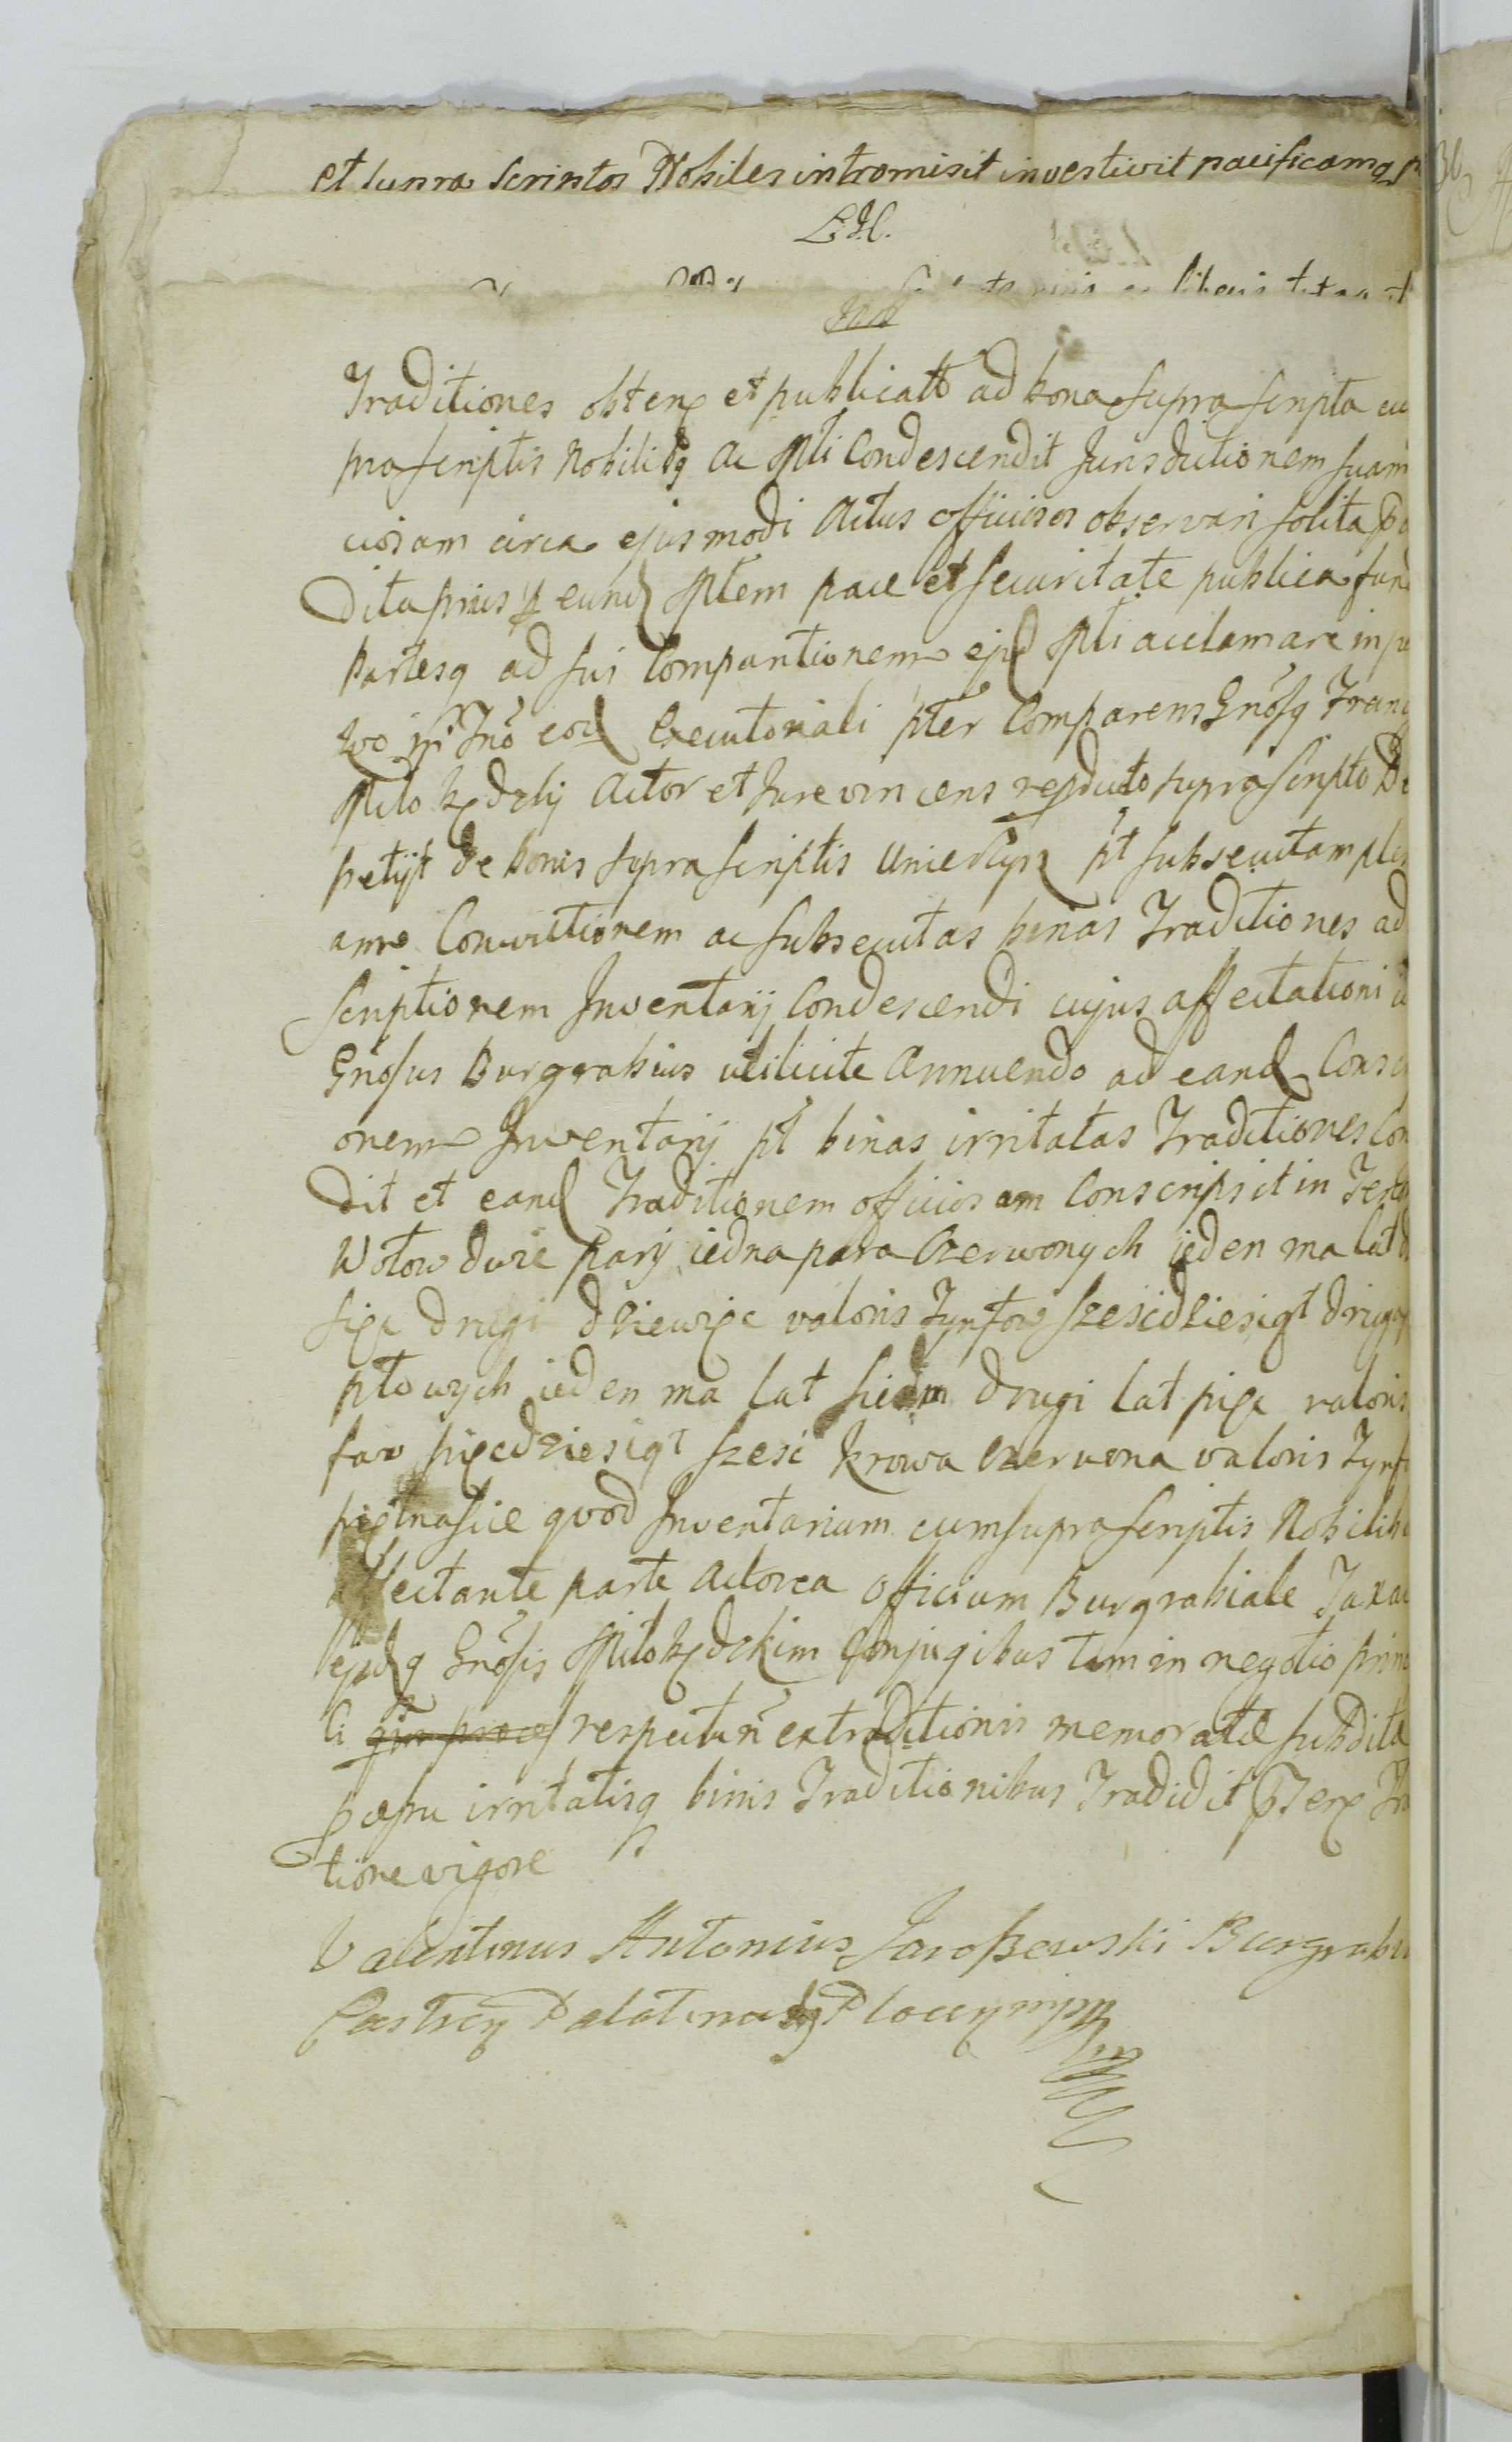 et supra scriptos Nobiles intromisit investivit pacificamq
L: J: C.
Traditiones obtenę et publicatę ad bona supra scripta cu
prascriptis Nobilibq ac Mli Condescendit Jurisdictionem suam
ciosam circa ejusmodi Actus officiosos observari solita
dita prius eund Mlem pace et securitate publica fun
Partesq ad sui Compartionem ejd Mli acclamare in
Tno eod Executoriali pter Comparens Gnosq Franc
Milobędzkij Actor et Jure vincens reproducto suprascripto De
petijt de bonis supra scriptis Unierzysz pt subsecutam ple
am Convictionem ac subsecutas binas Traditiones ad
scriptionem Inventarij Condescendi cujus affectationi
Gnosus Burgrabius uti licite Annuendo ad eand Consc
onem Inventarij pt binas irritatas Traditiones Con
dit et eand Traditionem officiosam Conscripsit in
Wołow dwie pary iedna para Czerwonych ieden ma lat
sięc drugi dziewięc valoris Tynfow sześcdziesiąt druga
płowych ieden ma lat siedm drugi lat pięc valoris
fow pięcdziesiąt sześć krowa czerwona valoris Tynf
piętnascie quod Inventarium cum supra scriptis Nobilib
affectante parte Actorea Officium Burgrabiale Taxa
ejdq Gnosis Milobędzkim Conjugibus tam in negotio prin
li respectu extraditionis memoratæ subditæ
irritatisq binis Traditionibus Tradidit
tione vigore
Valentinus Antonius Jaroszewski Burgrabi
Castren Palatinatq Plocen mpp